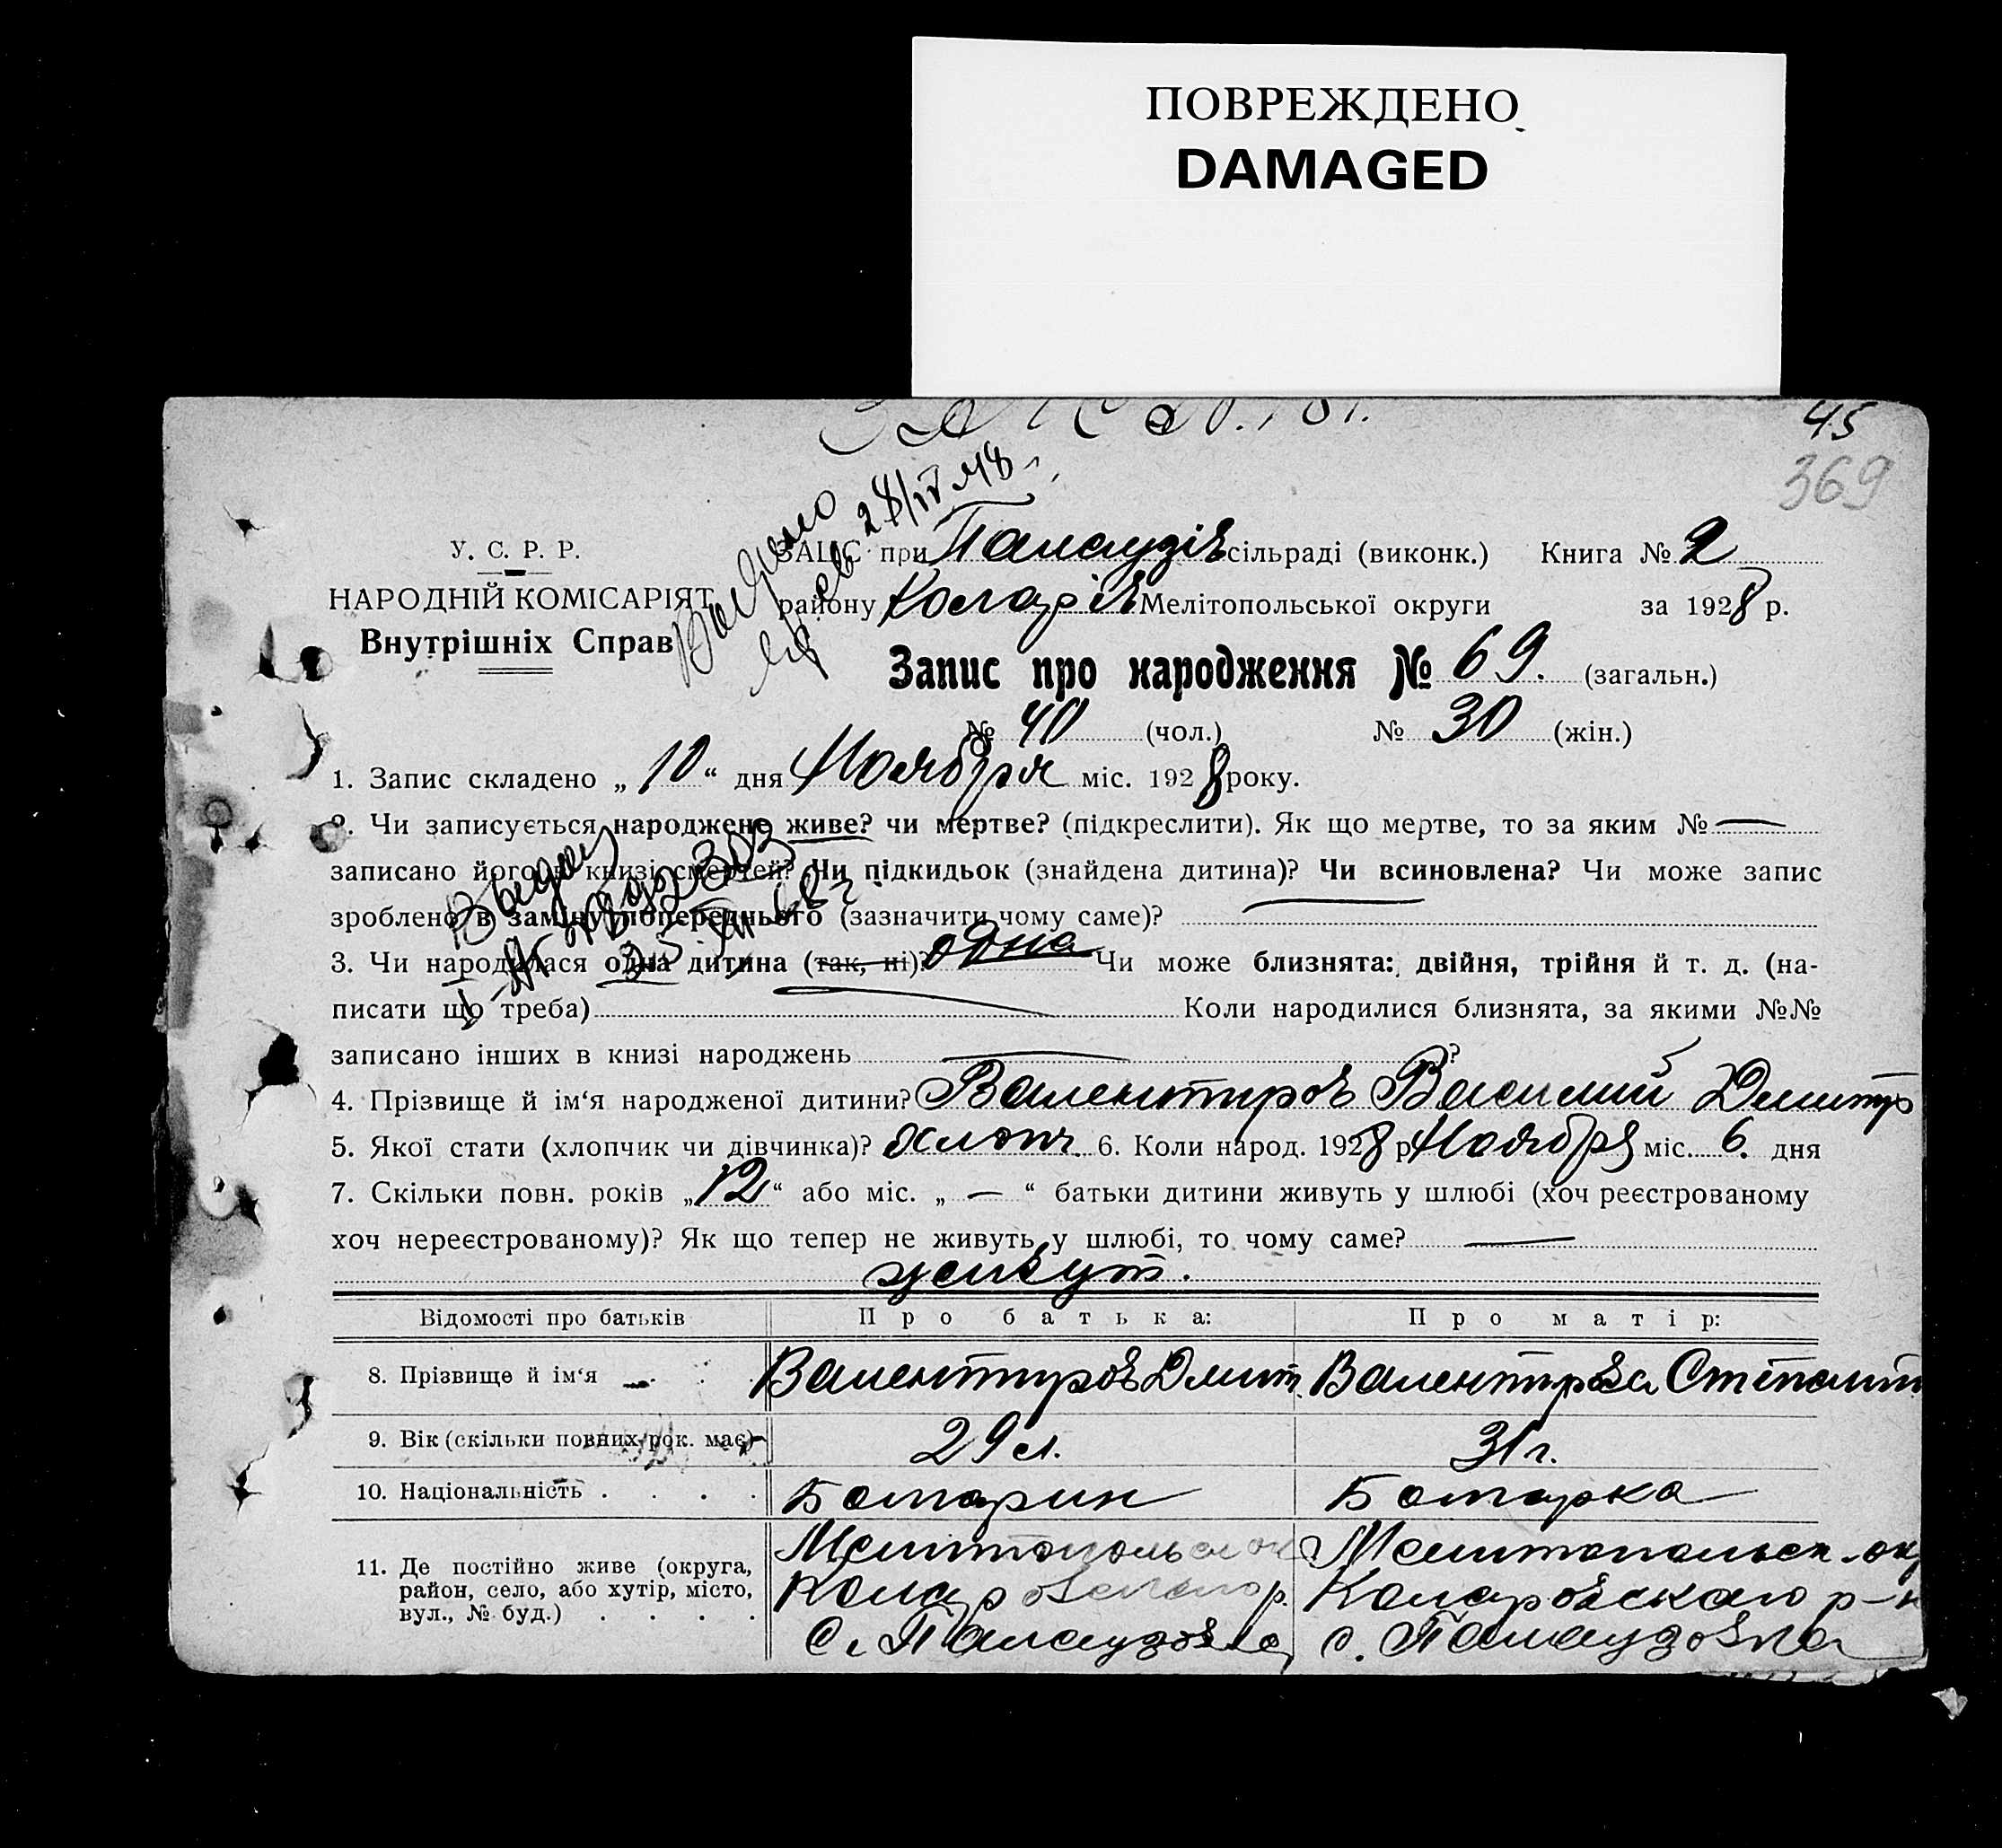 ПОВРЕЖДЕНО
DAMAGED
45
369
Выдано
28/IV 48
У. С. Р. Р.
НАРОДНІЙ КОМІСАРІЯТ
Внутрішніх Справ
ЗАПИС при Палаузів сільраді (виконк.) Книга № 2
району Коларів Мелітопольської округи за 1928 р.
Запис про народження № 69. (загальн.)
№ 40 (чол.) № 30 (жін.)
1. Запис складено „ 10 “ дня Ноября міс. 1928 року.
2. Чи записується народжене живе? чи мертве? (підкреслити). Як що мертве, то за яким № —
записано його в книзі смертей? Чи підкидьок (знайдена дитина)? Чи всиновлена? Чи може запис
зроблено в заміну попереднього (зазначити чому саме)? —
3. Чи народилася одна дитина (так, ні)? одна Чи може близнята: двійня, трійня й т. д. (на-
писати що треба) — Коли народилися близнята, за якими №№
записано інших в книзі народжень — ?
4. Прізвище й ім‘я народженої дитини? Валентиров Василий Дмитр
5. Якої стати (хлопчик чи дівчинка)? хлопч. 6. Коли народ. 1928 р Ноября міс. 6. дня
7. Скільки повн. років „ 12 “ або міс. „ — “ батьки дитини живуть у шлюбі (хоч реєстрованому
хоч нереєстрованому)? Як що тепер не живуть у шлюбі, то чому саме? —
живут.
Відомості про батьків Про батька: Про матір:
8. Прізвище й ім‘я Валентиров Дмит. Валентирова
9. Вік (скільки повних рок. має) 29 л. 31 г.
10. Національність Болгарин Болгарка
11. Де постійно живе (округа, район, село, або хутір, місто, вул., № буд.)
Мелитопольск Мелитопольск. ок
Коларовского р. Коларовского р-н
с. Палаузовка с. Палаузовка